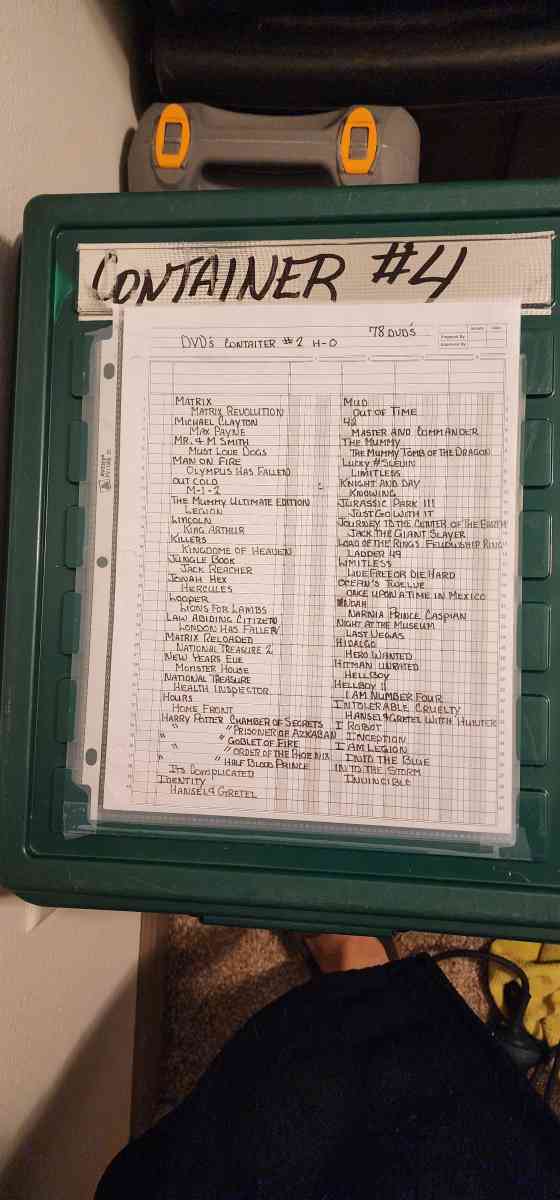 CONTAINER #4
78 DVD's
DVD's CONTAITER #2 H-O
MATRIX
MATRIX REVOLUTION
MICHAEL CLAYTON
MAX PAYNE
MR. & M SMITH
MUST LOVE DOGS
MAN ON FIRE
OLYMPUS HAS FALLEN
OUT COLD
M-I-2
THE MUMMY ULTIMATE EDITION
LEGION
LINCOLN
KING ARTHUR
KILLERS
KINGDOME OF HEAVEN
JUNGLE BOOK
JACK REACHER
JONAH HEX
HERCULES
LOOPER
LIONS FOR LAMBS
LAW ABIDING CITIZEN
LONDON HAS FALLEN
MATRIX RELOADED
NATIONAL TREASURE 2
NEW YEARS EVE
MONSTER HOUSE
NATIONAL TREASURE
HEALTH INSPECTOR
HOURS
HOME FRONT
HARRY POTTER CHAMBER OF SECRETS
" " PRISONER OF AZKABAN
" " GOBLET OF FIRE
" " ORDER OF THE PHOENIX
" " HALF BLOOD PRINCE
ITS COMPLICATED
IDENTITY
HANSEL & GRETEL
MUD
OUT OF TIME
42
MASTER AND COMMANDER
THE MUMMY
THE MUMMY TOMB OF THE DRAGON
LUCKY # SLEVIN
LIMITLESS
KNIGHT AND DAY
KNOWING
JURASSIC PARK III
JUST GO WITH IT
JOURNEY TO THE CENTER OF THE EARTH
JACK THE GIANT SLAYER
LOAD OF THE RINGS FELLOWSHIP RING
LADDER 49
LIMITLESS
LIVE FREE OR DIE HARD
OCEAN'S TWELVE
ONCE UPON A TIME IN MEXICO
NOAH
NARNIA PRINCE CASPIAN
NIGHT AT THE MUSEUM
LAST VEGAS
HIDALGO
HERO WANTED
HITMAN UNRATED
HELLBOY
HELLBOY II
I AM NUMBER FOUR
INTOLERABLE CRUELTY
HANSEL & GRETEL WITCH HUNTER
I ROBOT
INCEPTION
I AM LEGION
INTO THE BLUE
INTO THE STORM
INVINCIBLE